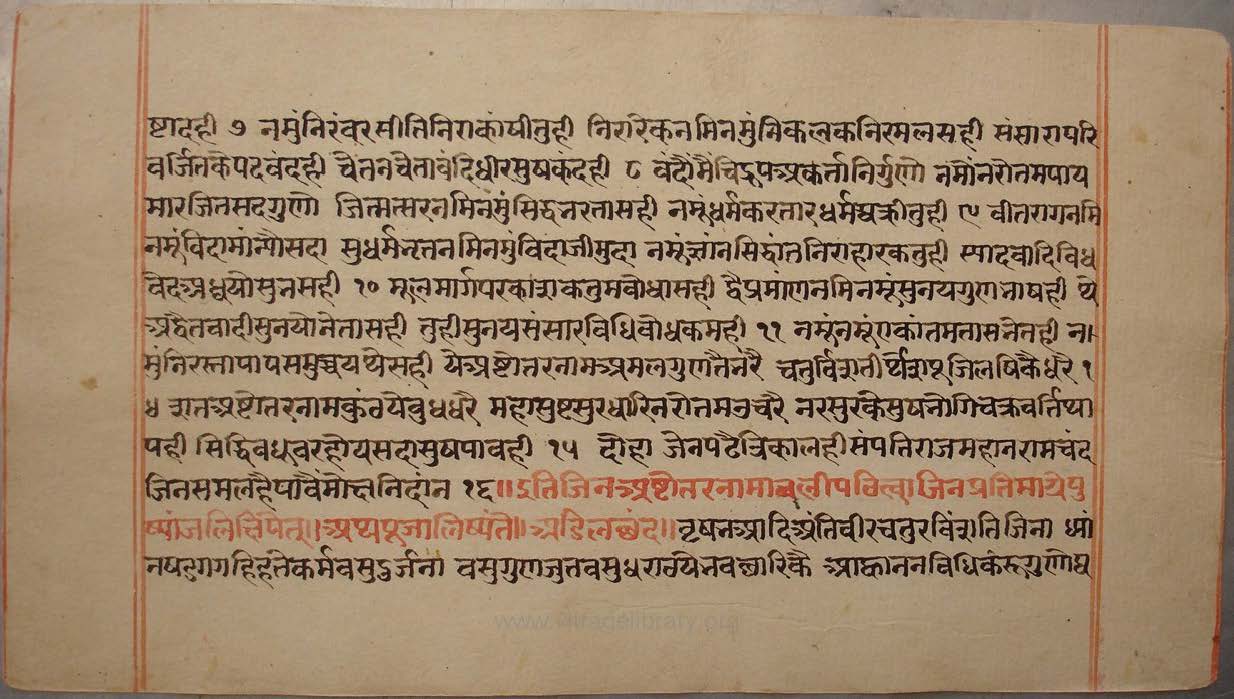 ष्टादही ७ नमुंनिरंवरसीतिनिराकांषीतुही निरारेकनमिनमुंनिकलकनिरमलसही संसारापरि
वर्जितकैपदवंदही चैतनचैतावंदिधीरसुषकदही ८ वंदौंमैंचिद्रुपअकर्तानिर्गुणो नमौंनरोतमपाय
मारजितसदगुणो जितमत्सरनमिनमुंसिद्धनरतासही नमूंधर्मकरतारधर्म तुही ९ वीतरागनमि
नमूंविदामां सदा सुधर्मनृतनमिनमुंविदांजीमुदा नमूंज्ञांनसिद्धांतनिराहारकतुही स्यादवादिविध
वैदअध्वयौसुनसही १० मूलमार्गपरकाशकतुमवोधासही द्वैप्रमांणनमिनमूंसुनयगुणनाषही थे
अद्वैतवादीसुनयौनेतासही तुहीसुनयसंसारविधिवोधकमही ११ नमूंनमूंएकांतमतासनेतही न।
मुंनिरस्तापापसमुच्चयथेसही येअष्टोतरनामअमलगुणतैनरै चतुर्विंशतीर्थेशपुजिलषिकैधरै १
४ शतअष्टोतरनामकुंवयेबुधधरै महासुष्टसुरधारिनरोतमउचरै नरसुरकैसुषनोगिचक्रवर्तिथा
पही सिद्धिवधुवरहोयसदासुषपावही १५ दोहा जेनपठैत्रिकालहीसंपतिराजमहानरामचंद
जिनसमलहैपावैंमोक्षनिदांन १६॥इतिजिनअष्टोतरनामावलीपठित्वाजिनप्रतिमाग्रेपु
ष्पांजलिंक्षिपेतु॥अथपुजालिष्यते॥अडिलछंद॥वृषनआदिअंतिवीरचतुरविंशतिजिना ध्यां
नषणगगहिहतेकर्मवसुऽर्जना वसुगुणजुतवसुधरा आह्वाननविधिकंरुगुणोघ